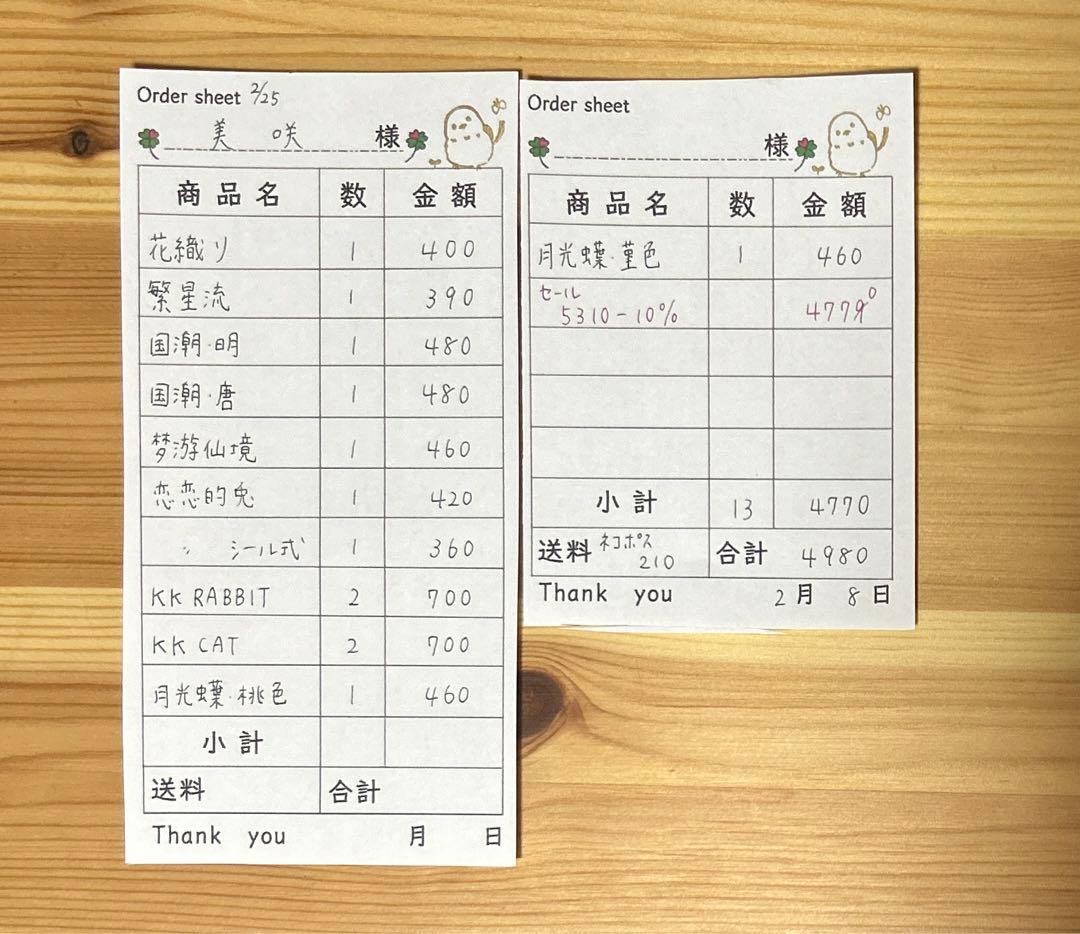 Order sheet 2/25
美 咲 様
商品名 数 金額
花織り 1 400
繁星流 1 390
国潮・明 1 480
国潮・唐 1 480
梦游仙境 1 460
恋恋的兎 1 420
〃 シール式 1 360
KK RABBIT 2 700
KK CAT 2 700
月光蝶・桃色 1 460
小計
送料 合計
Thank you 月 日
Order sheet
様
商品名 数 金額
月光蝶・菫色 1 460
セール
5310-10% 4770
小計 13 4770
送料 ネコポス 210 合計 4980
Thank you 2月 8日